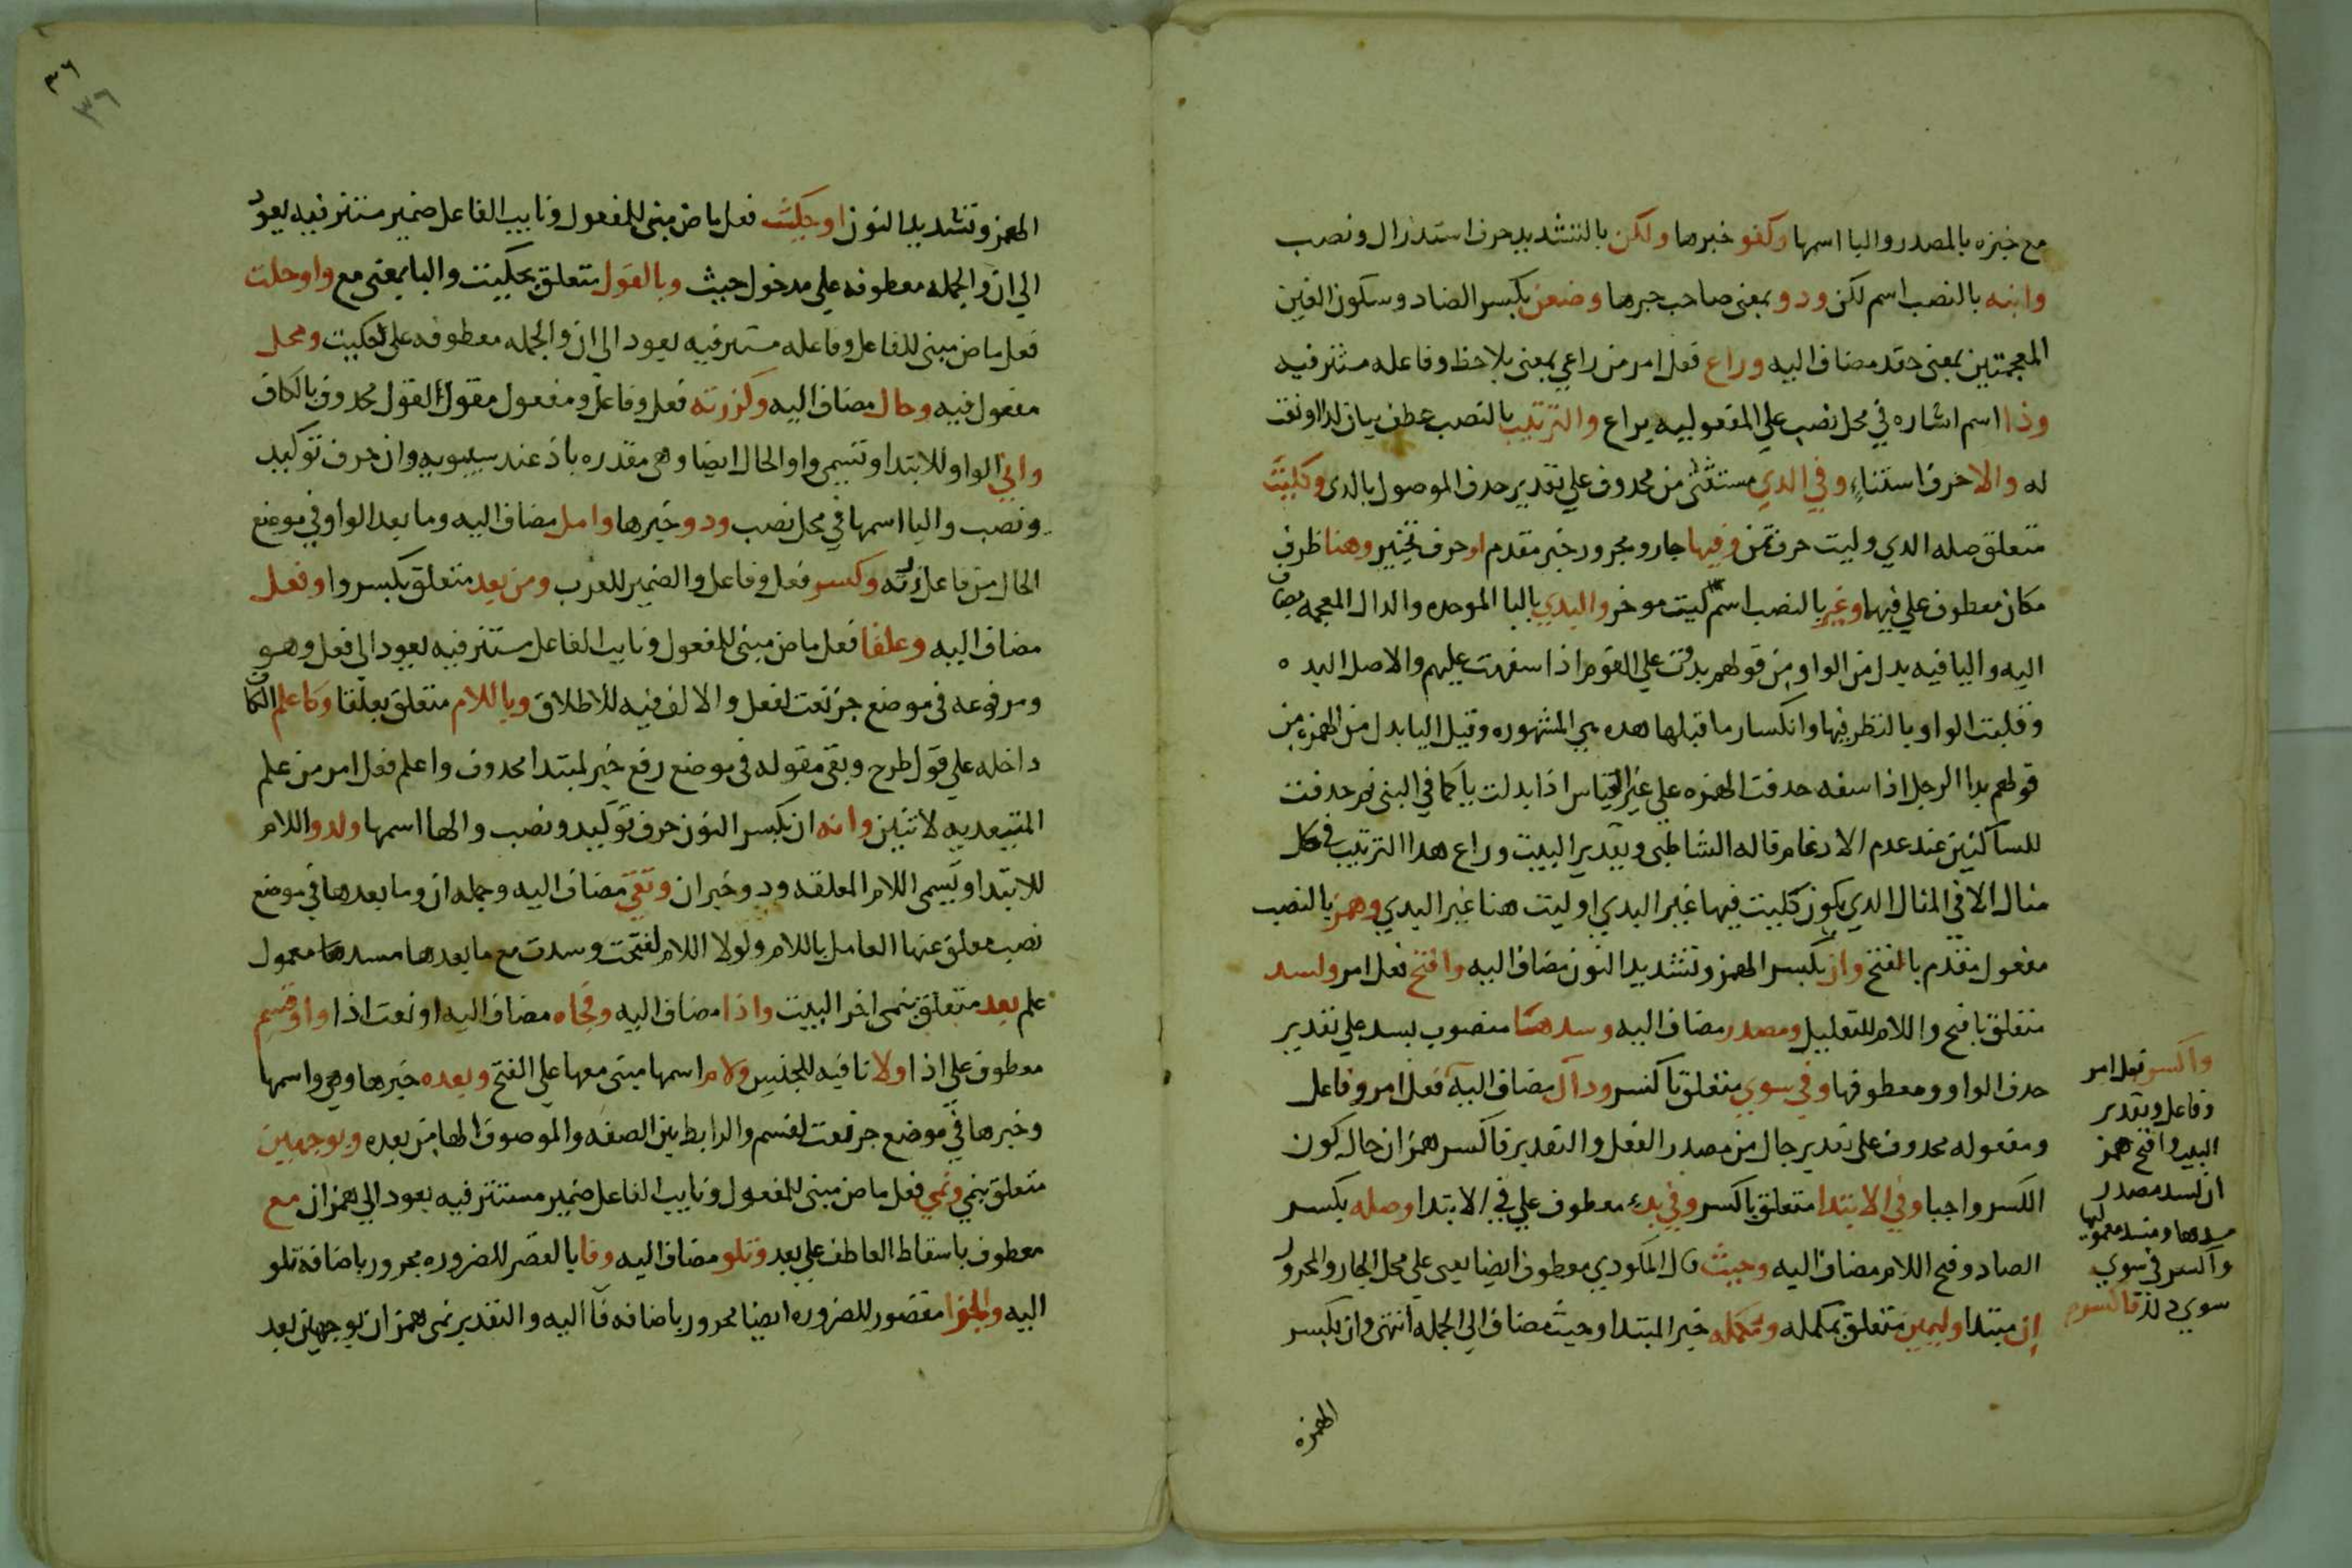 مع خبره بالمصدر واليا اسمها وكفو خبرها ولكن بالتشديد حرف استدراك ونصب
وابنه بالنصب اسم لكن وذو بمعنى صاحب خبرها وضعن بكسر الضاد وسكون الغين
المعجمتين بمعنى حقد مضاف اليه وراع فعل امر من راعي بمعنى يلاحظ وفاعله مستتر فيه
وذا اسم اشاره في محل نصب علي المفعوليه براع والترتيب بالنصب عطف بيان لذا او نعت
له والا حرف استثناء وفي الذي مستثنى من محذوف علي تقدير حذف الموصول بالذي وكليت
متعلق صله الذي وليت حرف تمن وفيها جار ومجرور خبر مقدم او حرف تخيير وهنا ظرف
مكان معطوف علي فيها وغير بالنصب اسم ليت موخر والبذي بالبا الموحده والذال المعجمه مضاف
اليه واليا فيه بدل من الواو من قولهم بذوت علي القوم اذا سفهت عليهم والاصل البذ ٥
وقلبت الواو يا لتطرفها وانكسار ما قبلها هذه هي المشهوره وقيل اليا بدل من الهمزه من
قولهم بذا الرجل اذا سفه حذفت الهمزه علي غير القياس اذا ابدلت يا كما في النبي ثم حذفت
للساكنين عند عدم الادغام قاله الشاطبي وتقدير البيت وراع هذا الترتيب في كل
مثال الا في المثال الذي يكون كليت فيها غير البذي او ليت هنا غير البذي وهمز بالنصب
مفعول مقدم بالفتح وان بكسر الهمز وتشديد النون مضاف اليه وافتح فعل امر ولسد
متعلق بافتح واللام للتعليل ومصدر مضاف اليه وسدها منصوب بسد علي تقدير
حذف الواو ومعطوفها وفي سوي متعلق باكسر وذاك مضاف اليه فعل امر وفاعل
ومفعوله محذوف علي تقدير حال من مصدر الفعل والتقدير فاكسر همز ان حال كون
الكسر واجبا وفي الابتدا متعلق باكسر وفي بدء معطوف علي في الابتدا وصله بكسر
الصاد وفتح اللام مضاف اليه وحيث قال المكودي معطوف ايضا يعني علي محل الجار والمجرور
ان مبتدا وليمين متعلق بمكمله ومكمله خبر المبتدا وحيث مضاف الي الجمله انتهي وان بكسر
الهمزه
واكسر فعل امر
وفاعل وتقدير
البيت وافتح همز
ان لسد مصدر
مسدها ومسد معموليها
واكسر في سوي
الهمز وتشديد النون او حكيت فعل ماض مبني للمفعول ونايب الفاعل ضمير مستتر فيه يعود
الي ان والجمله معطوفه علي مدخول حيث وبالقول متعلق بحكيت والبا بمعنى مع واو حلت
فعل ماض مبني للفاعل وفاعله مستتر فيه يعود الي ان والجمله معطوفه علي حكيت ومحل
مفعول فيه وحال مضاف اليه وكزرته فعل وفاعل ومفعول مقول القول محذوف بالكاف
واني الواو للابتدا وتسمي واو الحال ايضا وهي مقدره باذ عند سيبويه وان حرف توكيد
ونصب واليا اسمها في محل نصب وذو خبرها وامل مضاف اليه وما بعد الواو في موضع
الحال من فاعل زرته وكسر فعل وفاعل والضمير للعرب ومن بعد متعلق بكسروا وفعل
مضاف اليه وعلقا فعل ماض مبني للمفعول ونايب الفاعل مستتر فيه يعود الي فعل وهو
ومرفوعه في موضع جر نعت لفعل والالف فيه للاطلاق وباللام متعلق بعلقا وكاعلم الكاف
داخله علي قول طرح وبقي مقوله في موضع رفع خبر لمبتدا محذوف واعلم فعل امر من علم
المتعديه لاثنين وانه ان بكسر النون حرف توكيد ونصب والها اسمها ولذو اللام
للابتدا وتسمي اللام المعلقه وذو خبر ان وتقى مضاف اليه وجمله ان وما بعدها في موضع
نصب معلق عنها العامل باللام ولولا اللام لفتحت وسدت مع ما بعدها مسدها معمول
علم بعد متعلق بنمي اخر البيت واذا مضاف اليه وفجاه مضاف اليه او نعت اذا واو قسم
معطوف علي اذا ولا نافيه للجنس ولام اسمها مبني معها علي الفتح وبعده خبرها وهي واسمها
وخبرها في موضع جر نعت لقسم والرابط بين الصفه والموصوف الها من بعده وبوجهين
متعلق بنمي ونمي فعل ماض مبني للمفعول ونايب الفاعل ضمير مستتر فيه يعود الي همز ان مع
معطوف باسقاط العاطف علي بعد وتلو مضاف اليه وفا بالقصر للضروره مجرور باضافة تلو
اليه والجزا مقصور للضروره ايضا مجرور باضافه فا اليه والتقدير نمي همز ان بوجهين بعد
٣٦
٣٦